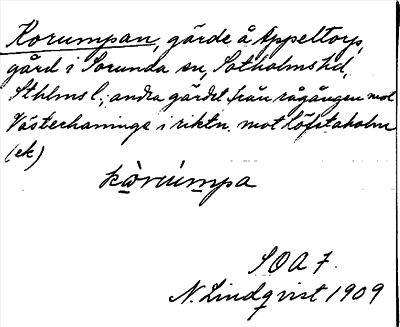 Korumpan, gärde å Appeltorp,
gård i Sorunda sn, Sotholms hd,
Sthlms l.; andra gärdet från rågången mot
Västerhaninge i riktn. mot Löfstaholm
(ek)
kòrúmpa
SOA 7.
N. Lindqvist 1909